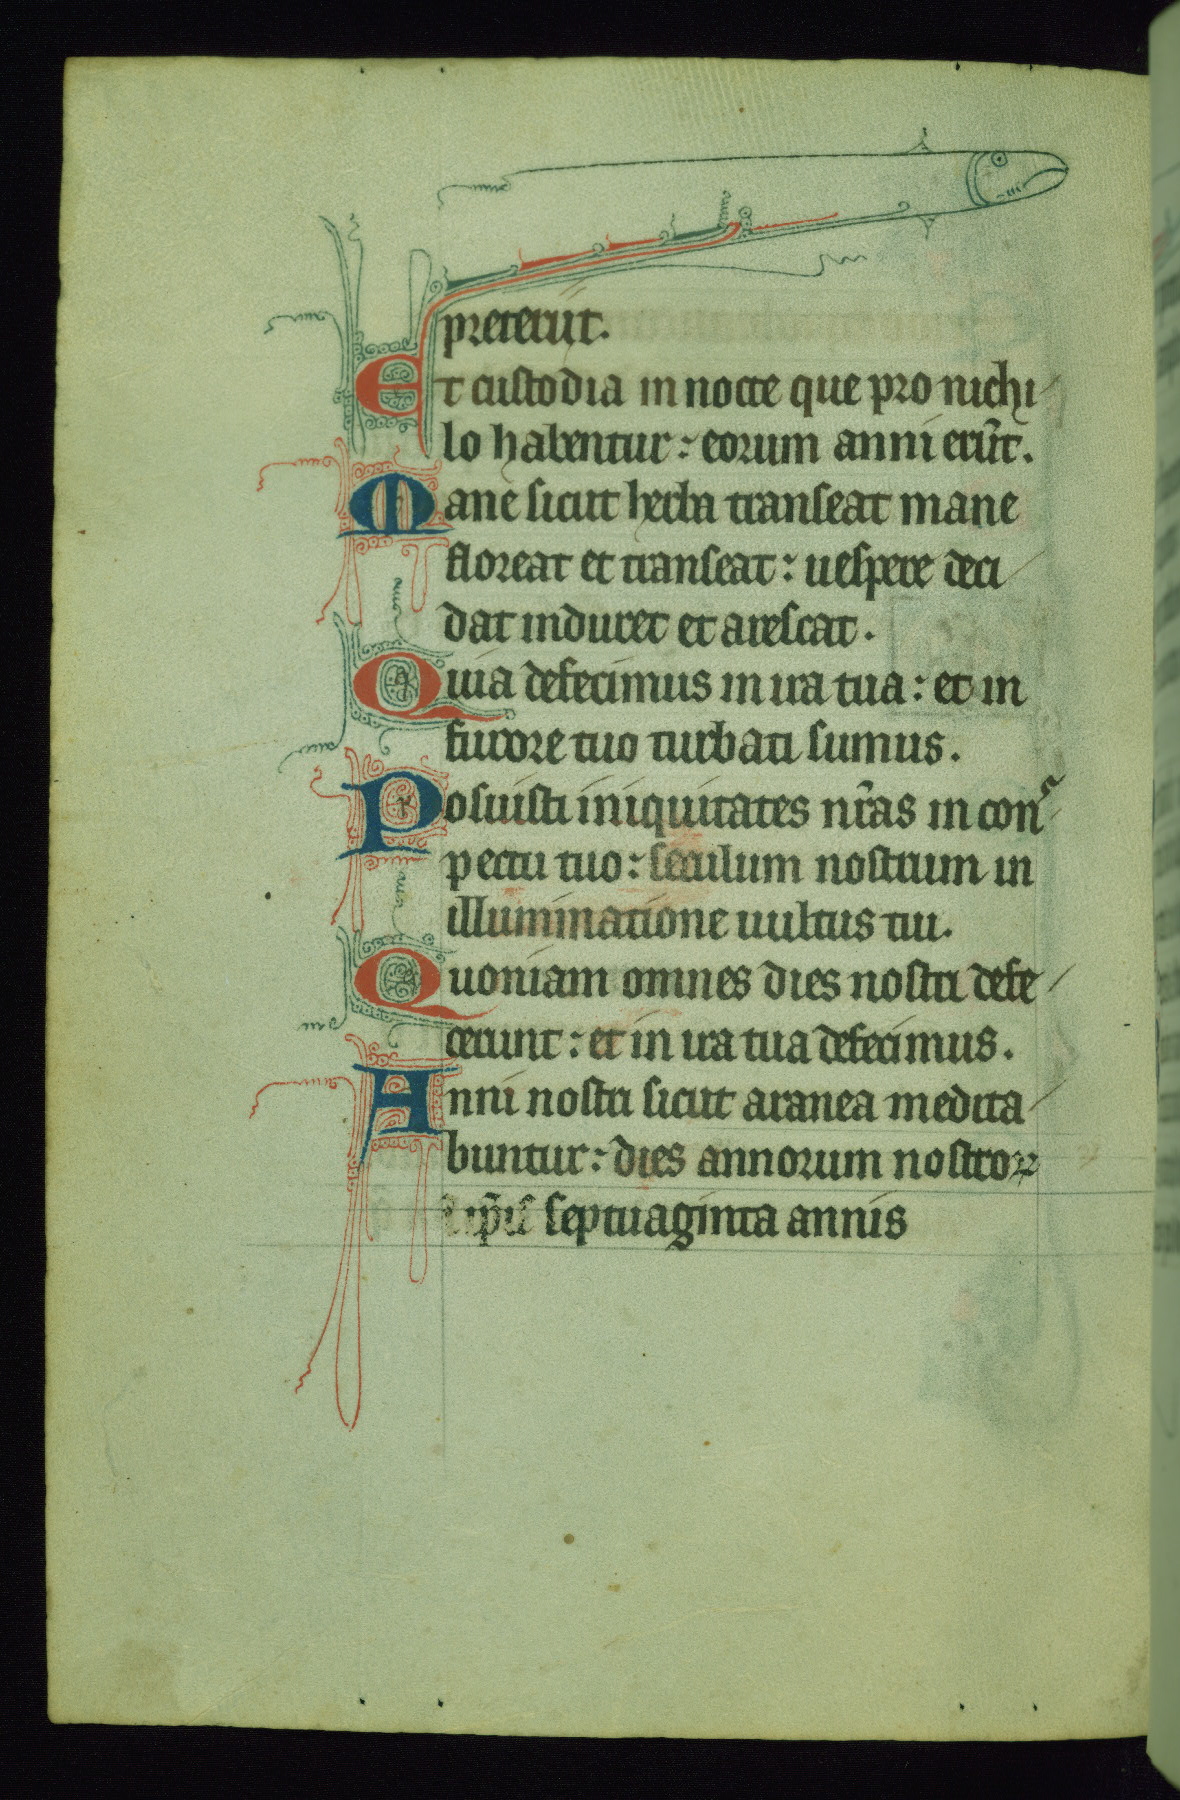 preteriit.
Et custodia in nocte que pro nichi
lo habentur: eorum anni erūt.
Mane sicut herba transeat mane
floreat et transeat: uespere deci
dat induret et arescat.
Quia defecimus in ira tua: et in
furore tuo turbati sumus.
Posuisti iniquitates nr̄as in cons
pectu tuo: seculum nostrum in
illuminatione uultus tui.
Quoniam omnes dies nostri defe
cerunt: et in ira tua defecimus.
Anni nostri sicut aranea medita
buntur: dies annorum nostroꝝ
ip̄is septuaginta annis